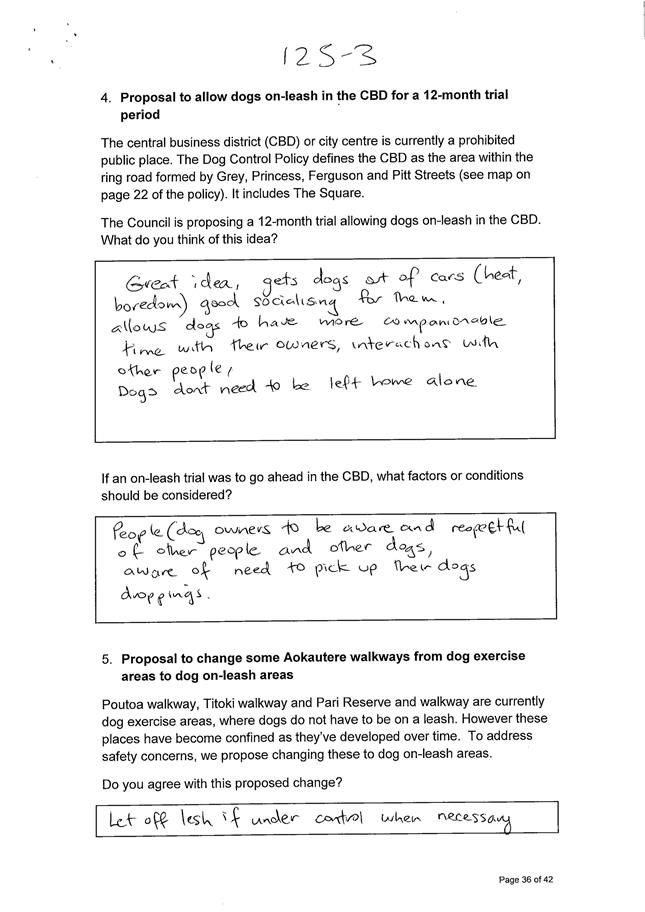 125-3
4. Proposal to allow dogs on-leash in the CBD for a 12-month trial
period
The central business district (CBD) or city centre is currently a prohibited
public place. The Dog Control Policy defines the CBD as the area within the
ring road formed by Grey, Princess, Ferguson and Pitt Streets (see map on
page 22 of the policy). It includes The Square.
The Council is proposing a 12-month trial allowing dogs on-leash in the CBD.
What do you think of this idea?
Great idea, gets dogs out of cars (heat,
boredom) good socialising for them.
allows dogs to have more companionable
time with their owners, interactions with
other people,
Dogs dont need to be left home alone
If an on-leash trial was to go ahead in the CBD, what factors or conditions
should be considered?
People (dog owners to be aware and respectful
of other people and other dogs,
aware of need to pick up their dogs
droppings.
5. Proposal to change some Aokautere walkways from dog exercise
areas to dog on-leash areas
Poutoa walkway, Titoki walkway and Pari Reserve and walkway are currently
dog exercise areas, where dogs do not have to be on a leash. However these
places have become confined as they've developed over time. To address
safety concerns, we propose changing these to dog on-leash areas.
Do you agree with this proposed change?
Let off lesh if under control when necessary
Page 36 of 42